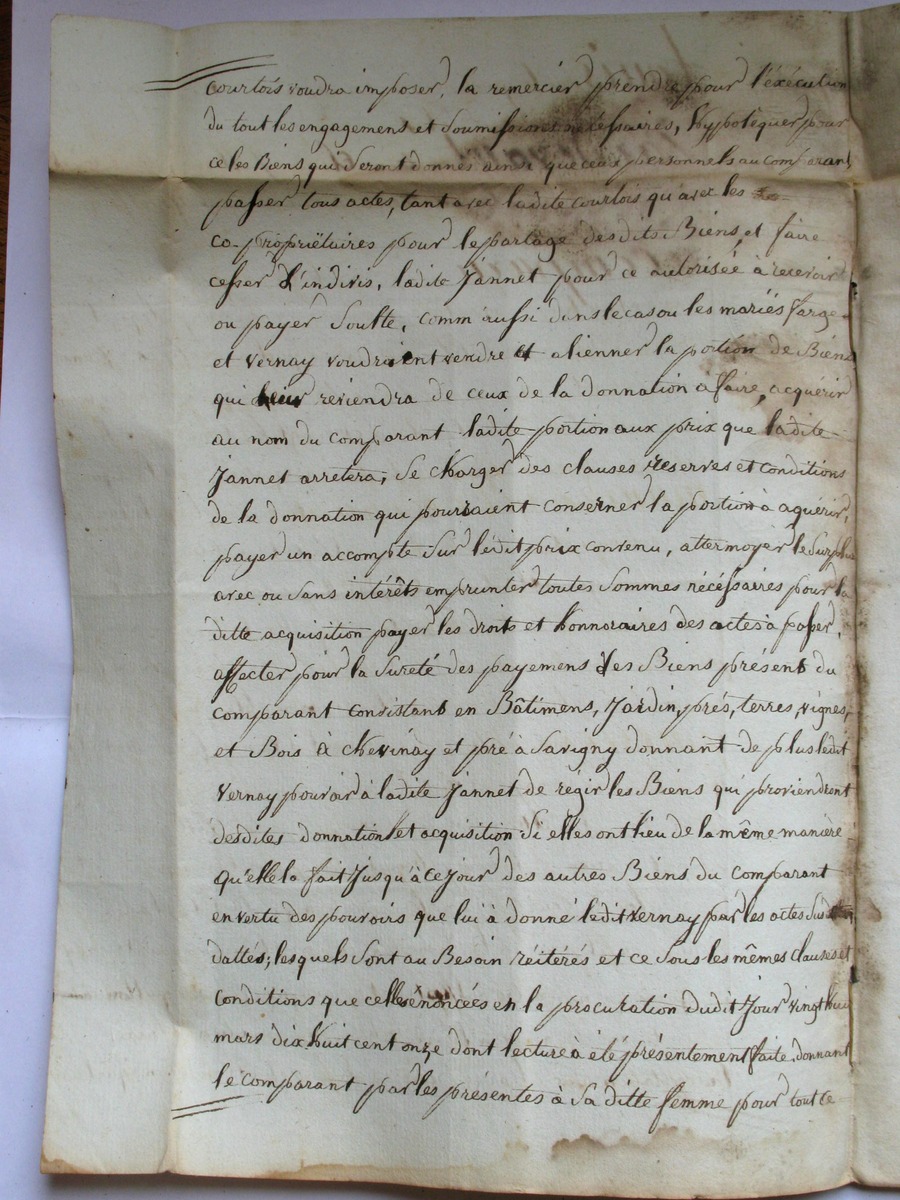 courtois voudra imposer, la remercier prendre pour l'éxécution
du tout les engagements et soumissions nécéssaires, hypotéquer pour
ce les Biens qui seront donnés ainsi que ceux personnels au comparant
passer tous actes, tant avec ladite courtois qu'avec les
co-propriétaires pour le partage desdits Biens, et faire
cesser L'indivis, ladite Jannet pour ce autorisée à recevoir
ou payer soulte, comm'aussi dans le cas ou les mariés farge
et vernay voudraient vendre et alienner la portion de Biens
qui leur reviendra de ceux de la donnation à faire, acquérir
au nom du comparant ladite portion aux prix que ladite
Jannet arretera, se charger des clauses reserves et conditions
de la donnation qui pouraient conserner la portion à aquérir,
payer un accompte sur lédit prix convenu, attermoyer le surplus
avec ou sans intérêts emprunter toutes sommes nécéssaires pour la
ditte acquisition payer les droits et honnoraires des actes à passer,
affecter pour la sureté des payemens des Biens présents du
comparant consistans en Bâtimens, Jardin, prés, terres, vignes,
et Bois à chevinay et pré à savigny donnant de plus ledit
vernay pouvoir à ladite Jannet de régir les Biens qui proviendront
desdites donnation et acquisition si elles ont lieu de la même manière
qu'elle la fait Jusqu'à ce jour des autres Biens du comparant
en vertu des pouvoirs que lui à donné ledit vernay par les actes sus
dattés; lesquels sont au Besoin réitérés et ce sous les mêmes clauses et
conditions que celles énoncées en la procuration dudit Jour vingt huit
mars dix huit cent onze dont lecture à été présentement faite. donnant
le comparant par les présentes à sa ditte femme pour tout ce